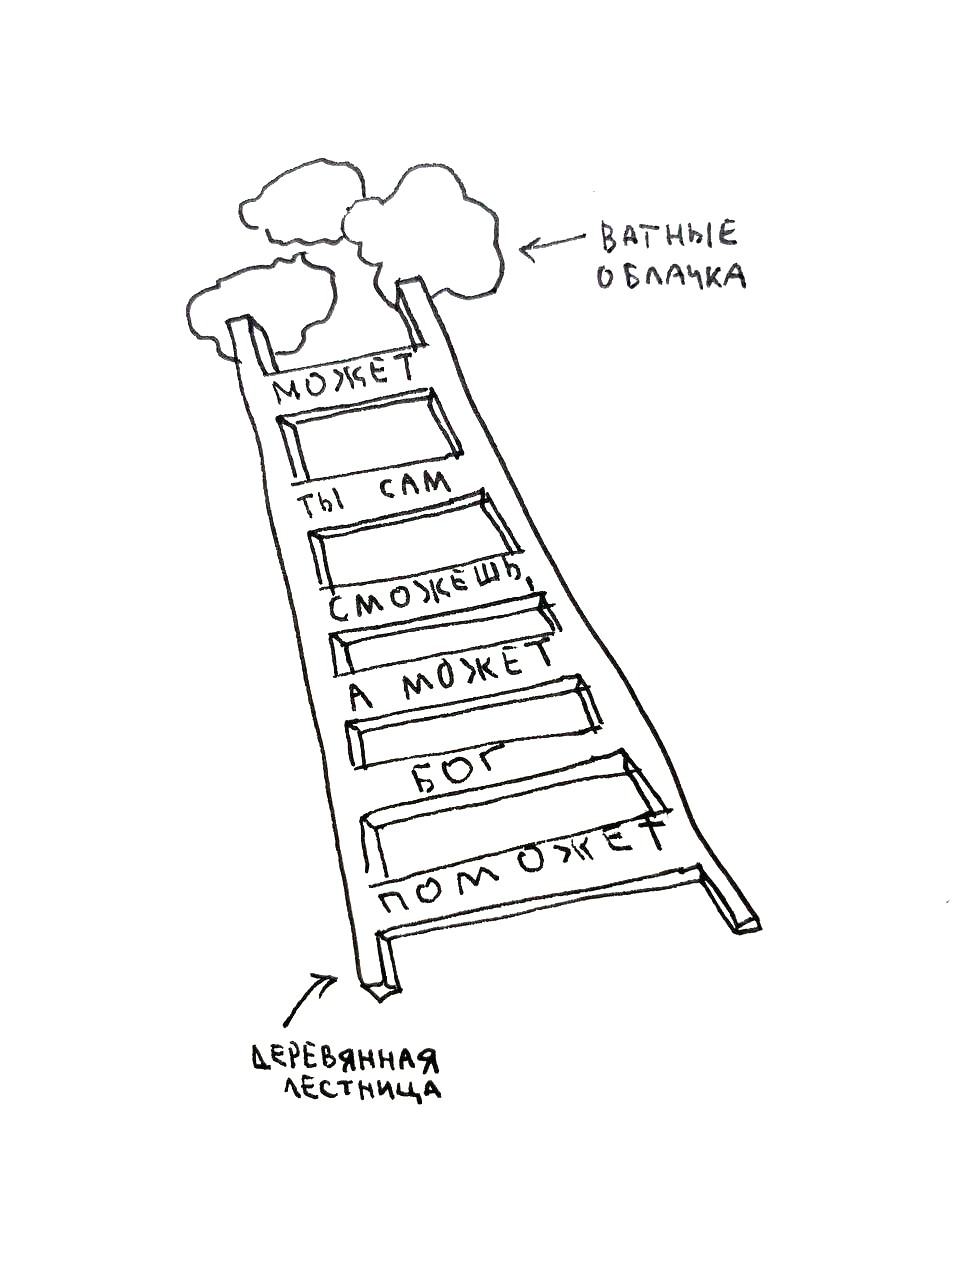 ВАТНЫЕ
ОБЛАЧКА
МОЖЕТ
ТЫ САМ
СМОЖЕШЬ,
А МОЖЕТ
БОГ
ПОМОЖЕТ
ДЕРЕВЯННАЯ
ЛЕСТНИЦА